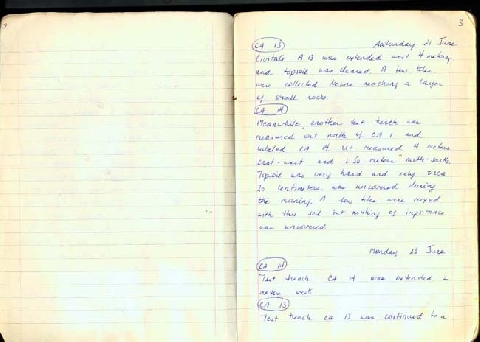 3
CA 13
Saturday 21 June
Civitate A 13 was extended west 4 meters
and topsoil was cleared. A few tiles
were collected before reaching a layer
of small rocks.
CA 14
Meanwhile, another test trench was
measured out north of CA and
labeled CA 14. It measured 4 meters
East-west and 1.50 meters north-south.
Topsoil was very hard and only
30 centimeters was uncovered during
the morning. A few tiles were mixed
with this soil but nothing of importance
was uncovered.
Monday 23 June
CA 14
Test trench CA 14 was extended
meters west
CA 13
Test trench CA 13 was continued to a